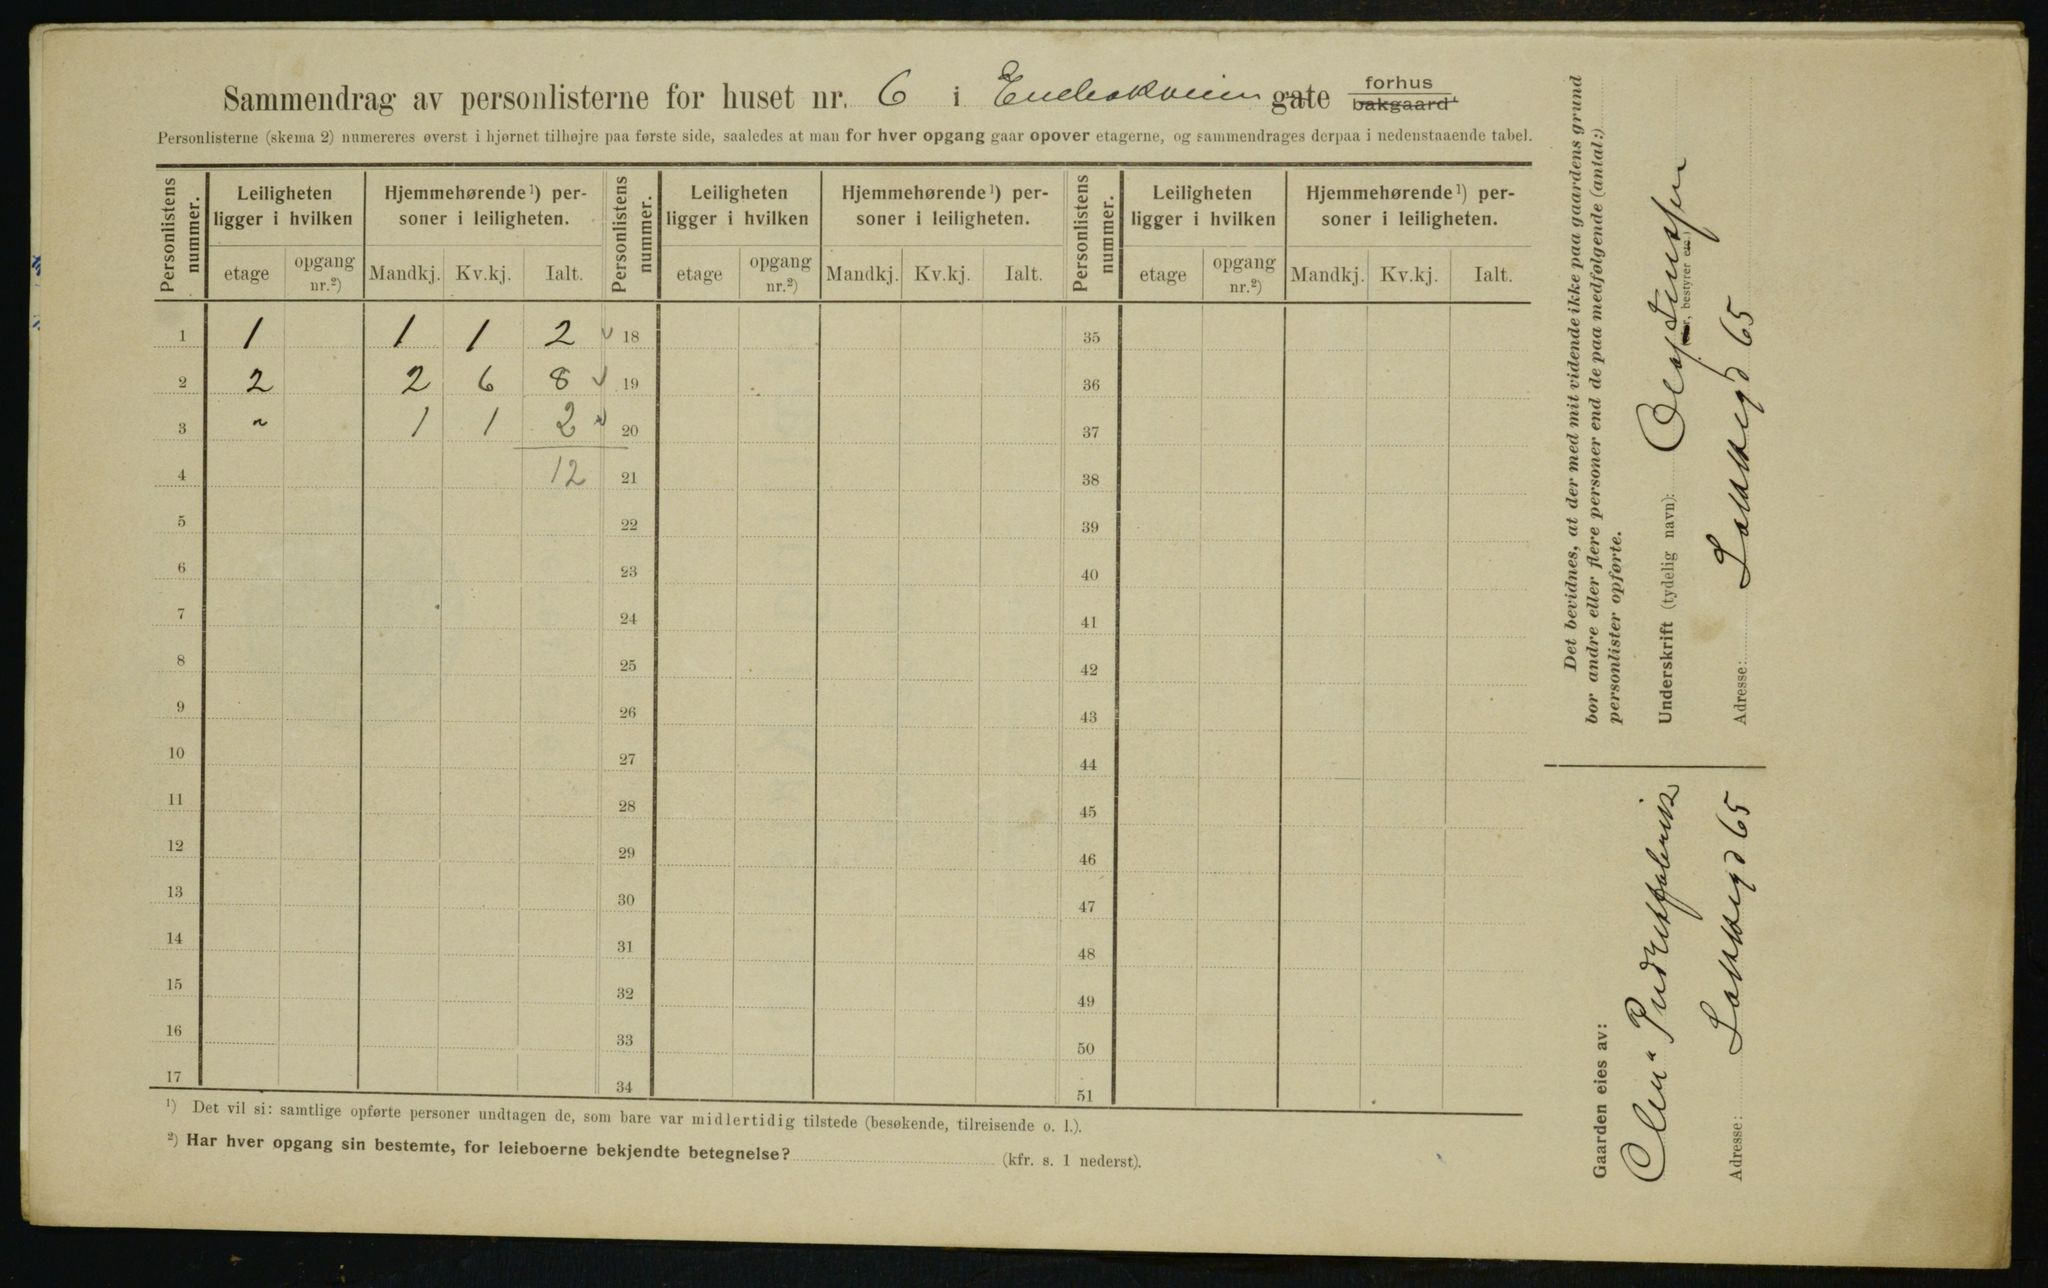 Sammendrag av personlisterne for huset nr. 6 i gate forhus bakgaard
Personlisterne (skema 2) numereres øverst i hjørnet tilhøjre paa første side, saaledes at man for hver opgang gaar opover etagerne, og sammendrages derpaa i nedenstaaende tabel.
Personlistens nummer. Leiligheten ligger i hvilken Hjemmehørende¹) personer i leiligheten. Personlistens nummer. Leiligheten ligger i hvilken Hjemmehørende¹) personer i leiligheten. Personlistens nummer. Leiligheten ligger i hvilken Hjemmehørende¹) personer i leiligheten.
etage opgang nr.²) Mandkj. Kv.kj. Ialt. etage opgang nr.²) Mandkj. Kv.kj. Ialt. etage opgang nr.²) Mandkj. Kv.kj. Ialt.
1 1 1 1 2 18 35
2 2 2 6 8 19 36
3 " 1 1 2 20 37
4 12 21 38
5 22 39
6 23 40
7 24 41
8 25 42
9 26 43
10 27 44
11 28 45
12 29 46
13 30 47
14 31 48
15 32 49
16 33 50
17 34 51
¹) Det vil si: samtlige opførte personer undtagen de, som bare var midlertidig tilstede (besøkende, tilreisende o. l.).
²) Har hver opgang sin bestemte, for leieboerne bekjendte betegnelse? (kfr. s. 1 nederst).
Det bevidnes, at der med mit vidende ikke paa gaardens grund
bor andre eller flere personer end de paa medfølgende (antal:)
personlister opførte.
Underskrift (tydelig navn): Olaf
bestyrer etc.)
Adresse: 65
Gaarden eies av:
Adresse: 65